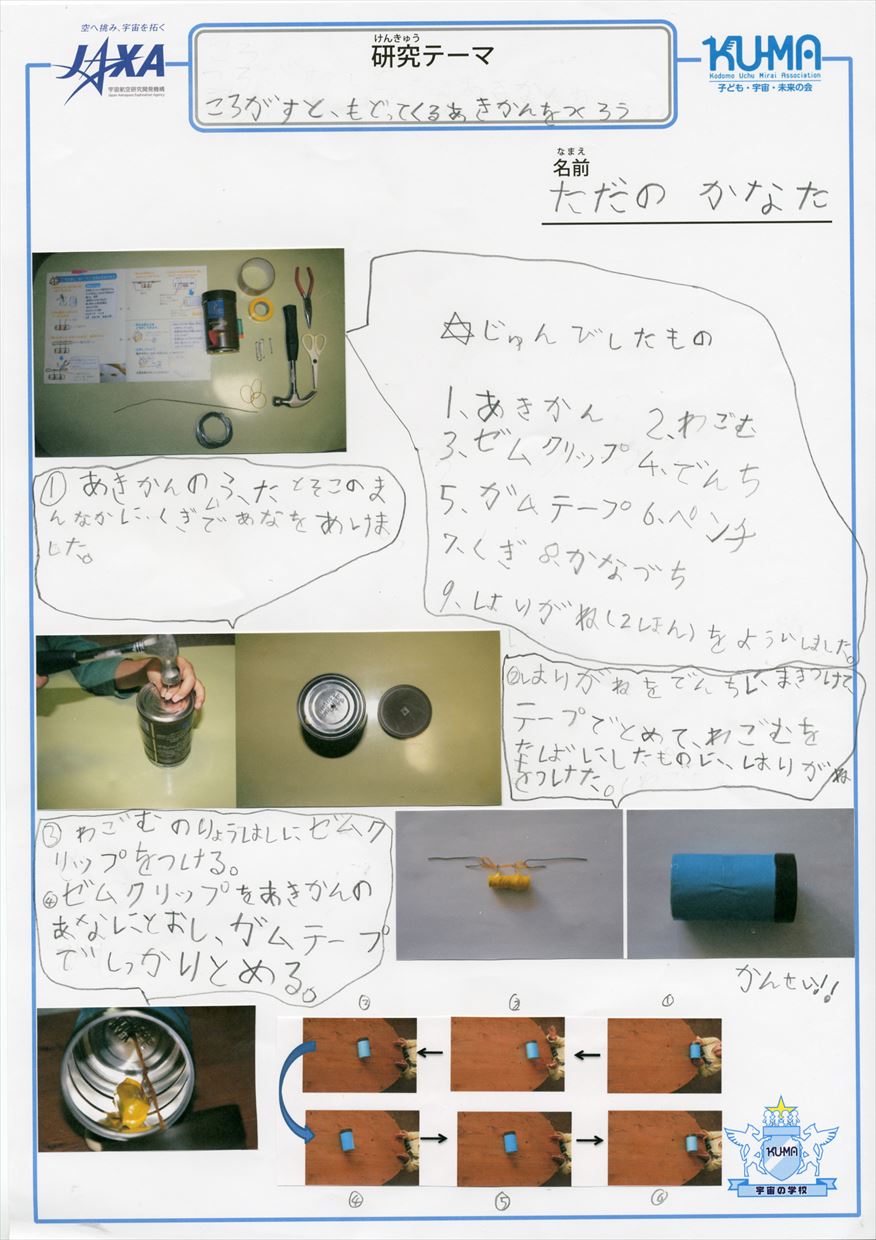 空へ挑み、宇宙を拓く
JAXA
宇宙航空研究開発機構
Japan Aerospace Exploration Agency
けんきゅう
研究テーマ
ころがすと、もどってくるあきかんをつくろう
KU-MA
Kodomo Uchu Mirai Association
子ども・宇宙・未来の会
なまえ
名前
ただの かなた
✡じゅんびしたもの
1、あきかん 2、わごむ
3、ゼムクリップ 4、でんち
5、ガムテープ 6、ペンチ
7、くぎ 8、かなづち
9、はりがね(2ほん)をよういしました。
① あきかんのふたとそこのま
んなかに、くぎであなをあけま
した。
②はりがねをでんちに、まきつけて
テープでとめて、わごむを
たばにしたものに、はりがね
をつけた。
③ わごむのりょうはしに、ゼムク
リップをつける。
④ゼムクリップをあきかんの
あなにとおし、ガムテープ
でしっかりとめる。
かんせい!!
③ ② ①
④ ⑤ ⑥
KU-MA
宇宙の学校